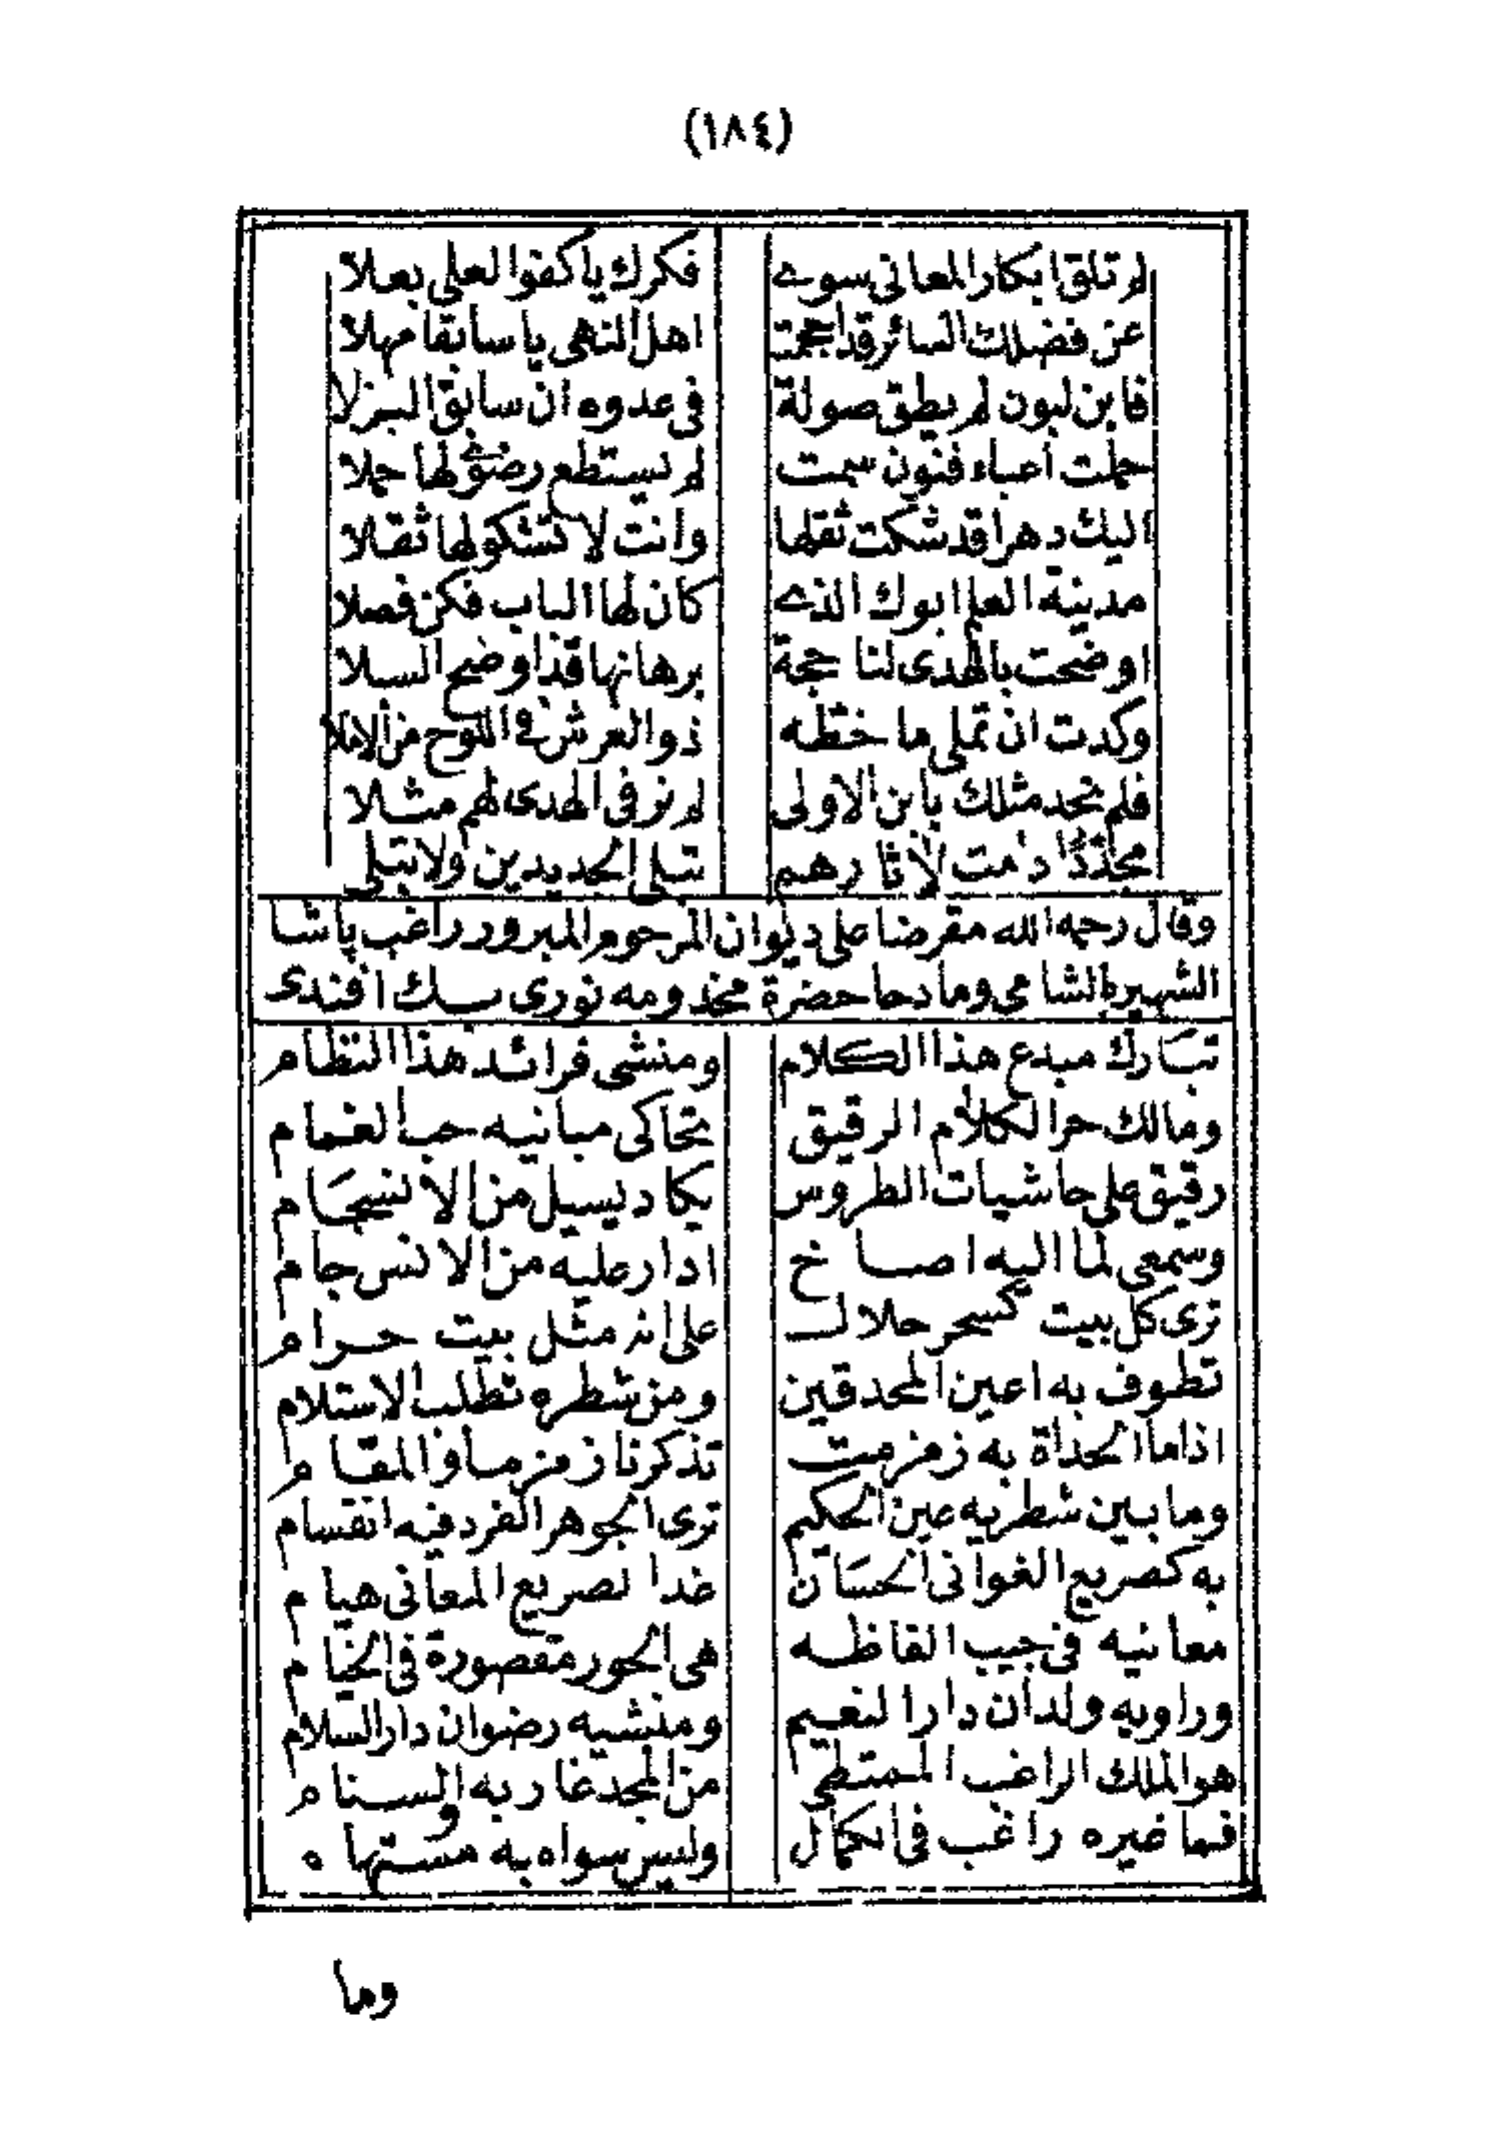 (١٨٤)
لم تلق ابكار المعانى سوى فكرك يا كفوا لعلى بعلا
عن فضلك السائر قد احجمت اهل النهى يا سابقا مهلا
فابن لبون لم يطق صولة فى عدوه ان سابق البزلا
حملت أعباء فنون سمت لم يستطع رضوى لها حملا
اليك دهرا قد شكت ثقلها وانت لا تشكو لها ثقلا
مدينة العلم ابوك الذى كان لها الباب فكن فصلا
اوضحت بالهدى لنا حجة برهانها قد اوضح السبلا
وكدت ان تملى ما خطه ذو العرش فى اللوح من الاملا
فلم نجد مثلك يا بن الاولى لم نر فى الهدى لهم مثلا
مجددا دمت لآثارهم تبلى الجديدين ولا تبلى
وقال رحمه الله مقرضا على ديوان المرحوم المبرور راغب پاشا
الشهير بالشامى ومادحا حضرة مخدومه نورى بك افندى
تبارك مبدع هذا الكلام ومنشى فرائد هذا النظام
ومالك حر الكلام الرقيق تحاكى مبانيه حب الغمام
رقيق على حاشيات الطروس يكاد يسيل من الانسجام
وسمعى لما اليه اصاخ ادار عليه من الانس جام
ترى كل بيت كسحر حلال على انه مثل بيت حرام
تطوف به اعين المحدقين ومن شطره تطلب الاستلام
اذا ما الحداة به زمزمت تذكرنا زمزما والمقام
وما بين شطريه عين الحكيم ترى الجوهر الفرد فيه انقسام
به كصريع الغوانى الحسان غدا لصريع المعانى هيام
معانيه فى جيب الفاظه هى الحور مقصورة فى الخيام
وراويه ولدان دار النعيم ومنشيه رضوان دار السلام
هو الملك الراغب الممتطى من المجد غاربه والسنام
فما غيره راغب فى الكمال وليس سواه به مستهام
وما